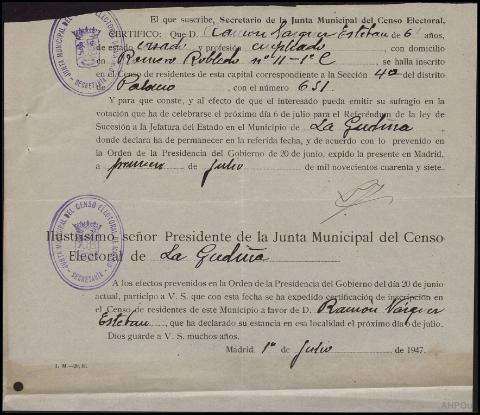 El que suscribe, Secretario de la Junta Municipal del Censo Electoral,
CERTIFICO: Que D. Ramon Vázquez Esteban de 6 años,
de estado casado y profesión empleado, con domicilio
en Romero Robledo nº 11-1º C, se halla inscrito
en el Censo de residentes de esta capital correspondiente a la Sección 40 del distrito
de Palacio, con el número 651.
Y para que conste, y al efecto de que el interesado pueda emitir su sufragio en la
votación que ha de celebrarse el próximo día 6 de julio para el Referéndum de la ley de
Sucesión a la Jefatura del Estado en el Municipio de La Gudiña
donde declara ha de permanecer en la referida fecha, y de acuerdo con lo prevenido en
la Orden de la Presidencia del Gobierno de 20 de junio, expido la presente en Madrid,
a primero de Julio de mil novecientos cuarenta y siete.
JUNTA MUNICIPAL DEL CENSO ELECTORAL
SECRETARIA
Ilustrísimo señor Presidente de la Junta Municipal del Censo
Electoral de La Gudiña
A los efectos prevenidos en la Orden de la Presidencia del Gobierno del día 20 de junio
actual, participo a V. S. que con esta fecha se ha expedido certificación de inscripción en
el Censo de residentes de este Municipio a favor de D. Ramon Vázquez
Esteban, que ha declarado su estancia en esa localidad el próximo día 6 de julio.
Dios guarde a V. S. muchos años.
Madrid, 1º de Julio de 1947.
JUNTA MUNICIPAL DEL CENSO ELECTORAL
SECRETARIA
I. M.-20, H.
AHPOu